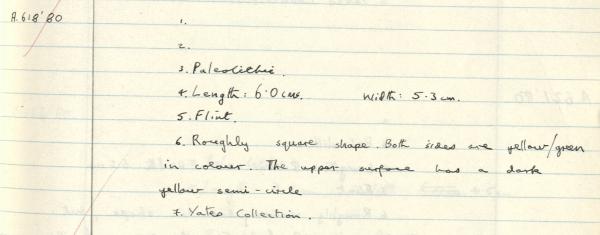 A.618'80
1.
2.
3. Paleolithic.
4. Length: 6.0 cms. Width: 5.3 cm.
5. Flint.
6. Roughly square shape. Both sides are yellow/green
in colour. The upper surface has a dark
yellow semi-circle
7. Yates Collection.